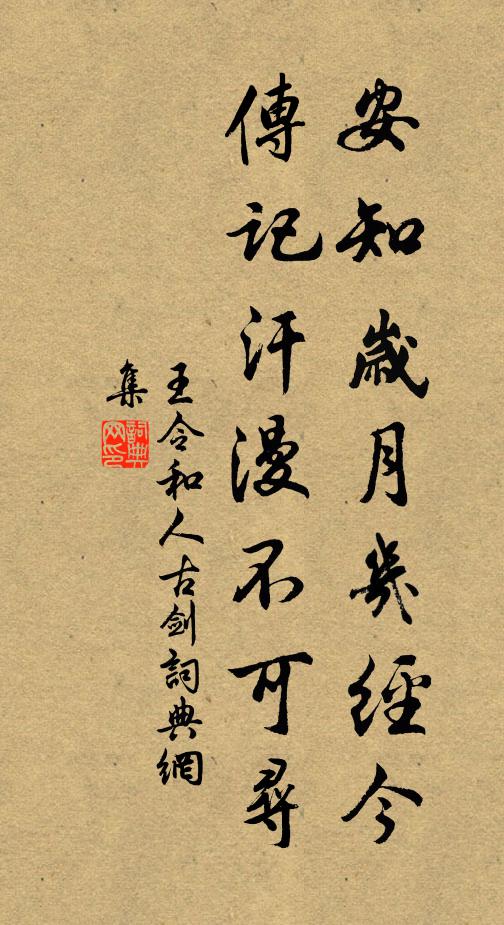 安知歲月幾經今
傳記汗漫不可尋
王令和人古劍詞典網
集
詞典網印